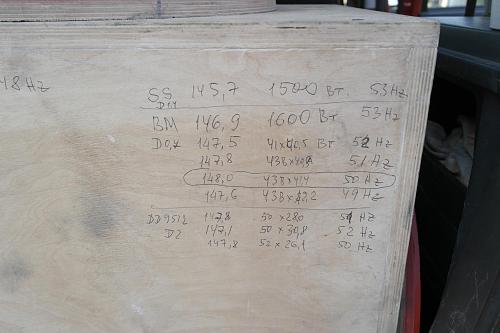 48Hz
SS 145,7 1500 Вт. 53Hz
D1,1
BM 146,9 1600 Вт 53Hz
D0,4 147,5 41×40,5 Вт 52 Hz
147,8 43В× 51 Hz
148,0 43В×41,4 50 Hz
147,6 43В×42,2 49 Hz
DD9512 147,8 50×28,0 51 Hz
D2 147,1 50×30,8 52 Hz
147,8 52×26,1 50 Hz